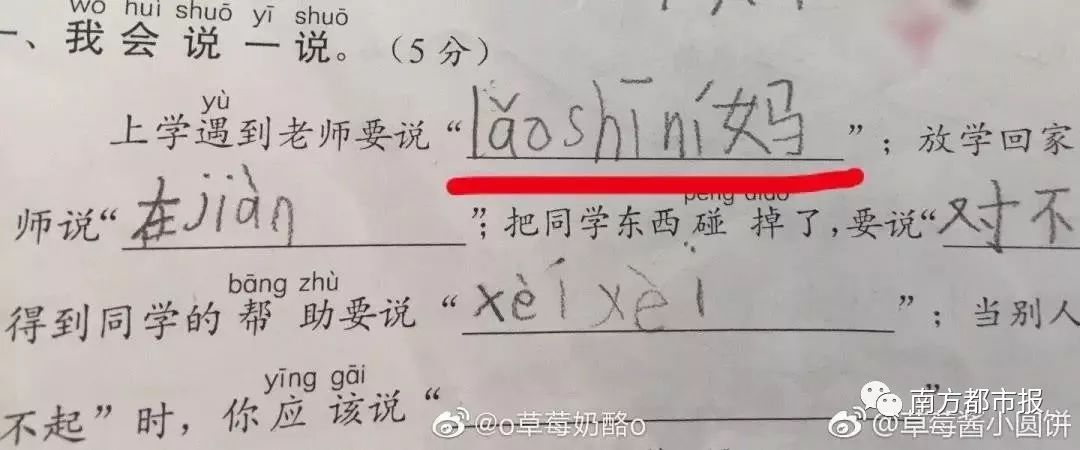 wǒ huì shuō yī shuō
一、我会说一说。（5分）
yù
上学遇到老师要说“lǎoshīní妈”；放学回家
师说“在jiàn”；把同学东西碰掉了，要说“对不
bāng zhù
得到同学的帮助要说“xèixèi”；当别人
yīng gāi
不起”时，你应该说“”
南方都市报
@o草莓奶酪o
@草莓酱小圆饼